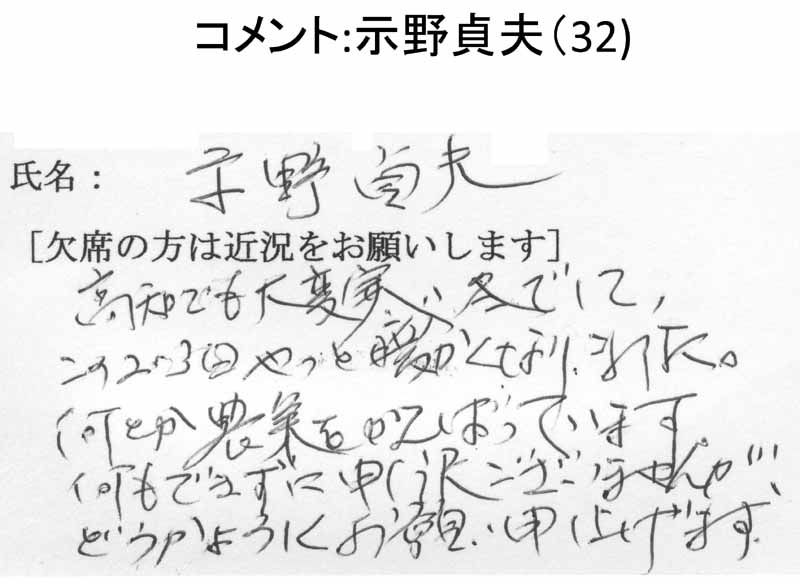 コメント:示野貞夫（32)
氏名： 示野貞夫
［欠席の方は近況をお願いします］
高知でも大変寒い冬でして，
この2〜3日やっと暖かくなりました。
何とか農業をがんばっています。
何もできずに申し訳ございませんが、
どうかよろしくお願い申し上げます。